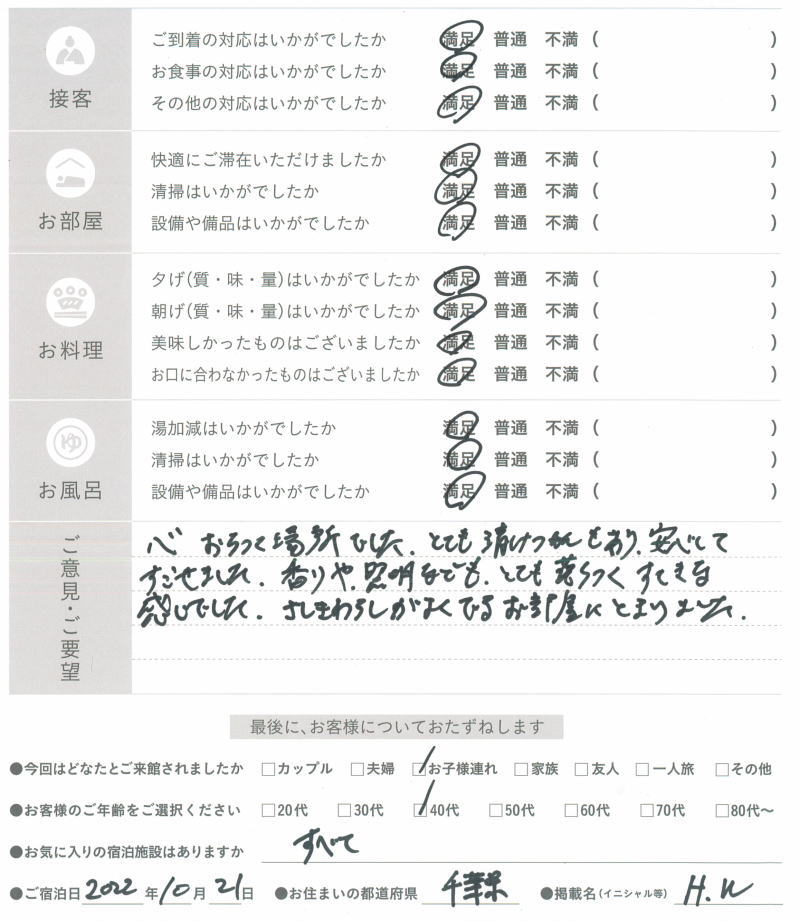 接客
ご到着の対応はいかがでしたか 満足 普通 不満 ( )
お食事の対応はいかがでしたか 満足 普通 不満 ( )
その他の対応はいかがでしたか 満足 普通 不満 ( )
お部屋
快適にご滞在いただけましたか 満足 普通 不満 ( )
清掃はいかがでしたか 満足 普通 不満 ( )
設備や備品はいかがでしたか 満足 普通 不満 ( )
お料理
夕げ(質・味・量)はいかがでしたか 満足 普通 不満 ( )
朝げ(質・味・量)はいかがでしたか 満足 普通 不満 ( )
美味しかったものはございましたか 満足 普通 不満 ( )
お口に合わなかったものはございましたか 満足 普通 不満 ( )
ゆ
お風呂
湯加減はいかがでしたか 満足 普通 不満 ( )
清掃はいかがでしたか 満足 普通 不満 ( )
設備や備品はいかがでしたか 満足 普通 不満 ( )
ご意見・ご要望
心 おちつく場所でした。とても清けつかんもあり、安心して
すごせました。香りや、照明なども、とても落ちつくすてきな
感じでした。がよくでるお部屋にとまりました。
最後に、お客様についておたずねします
●今回はどなたとご来館されましたか □カップル □夫婦 □お子様連れ □家族 □友人 □一人旅 □その他
●お客様のご年齢をご選択ください □20代 □30代 □40代 □50代 □60代 □70代 □80代〜
●お気に入りの宿泊施設はありますか すべて
●ご宿泊日 2022 年 10 月 21 日 ●お住まいの都道府県 千葉県 ●掲載名(イニシャル等) H.W